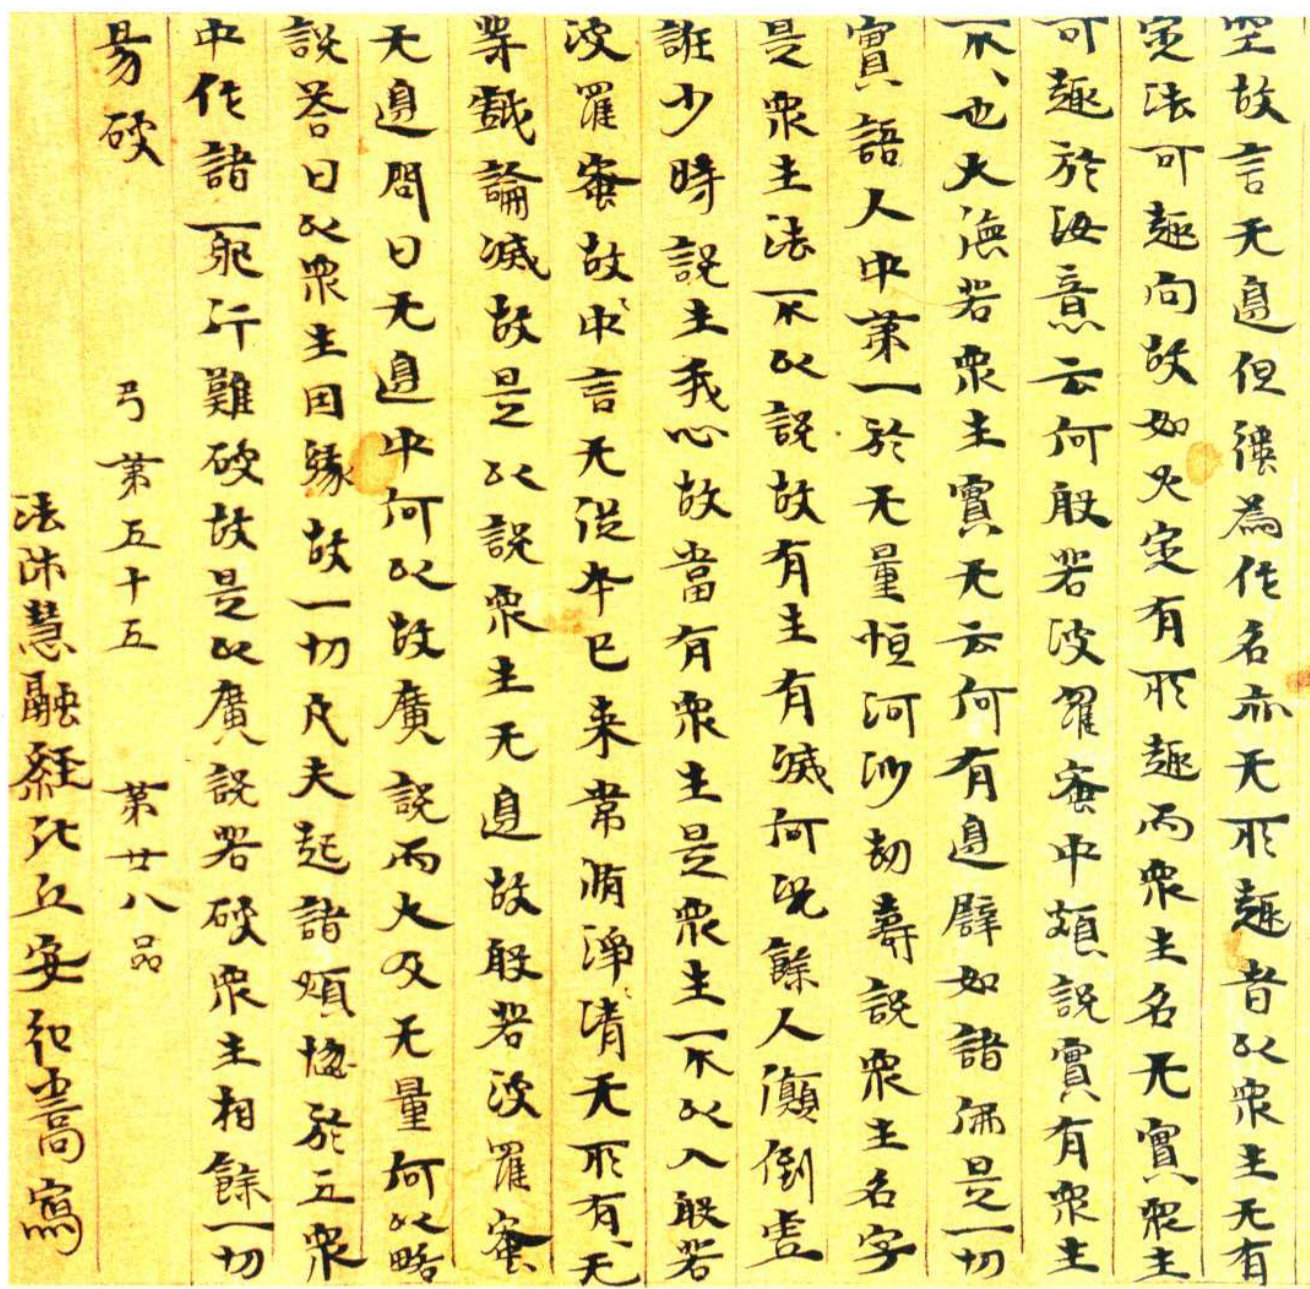 空故言无邊但強為作名亦无所趣者以眾生无有
定法可趣向故如火定有所趣而眾生名无實眾生
可趣於汝意云何般若波羅蜜中頗說實有眾生
不、也大德若眾生實无云何有邊譬如諸佛是一切
實語人中第一於无量恒河沙劫壽說眾生名字
是眾生法不以說故有生有滅何況餘人顛倒虛
誑少時說生我心故當有眾生是眾生不以入般若
波羅蜜故中言无從本已来常清淨清无所有无
等戲論滅故是以說眾生无邊故般若波羅蜜
无邊問曰无邊中何以故廣說而大及无量何以略
說答曰以眾生因緣故一切凡夫起諸煩惱於五眾
中作諸耶行難破故是以廣說若破眾生相餘一切
易破
弓第五十五 第廿八品
法師慧融經比丘安弘嵩寫